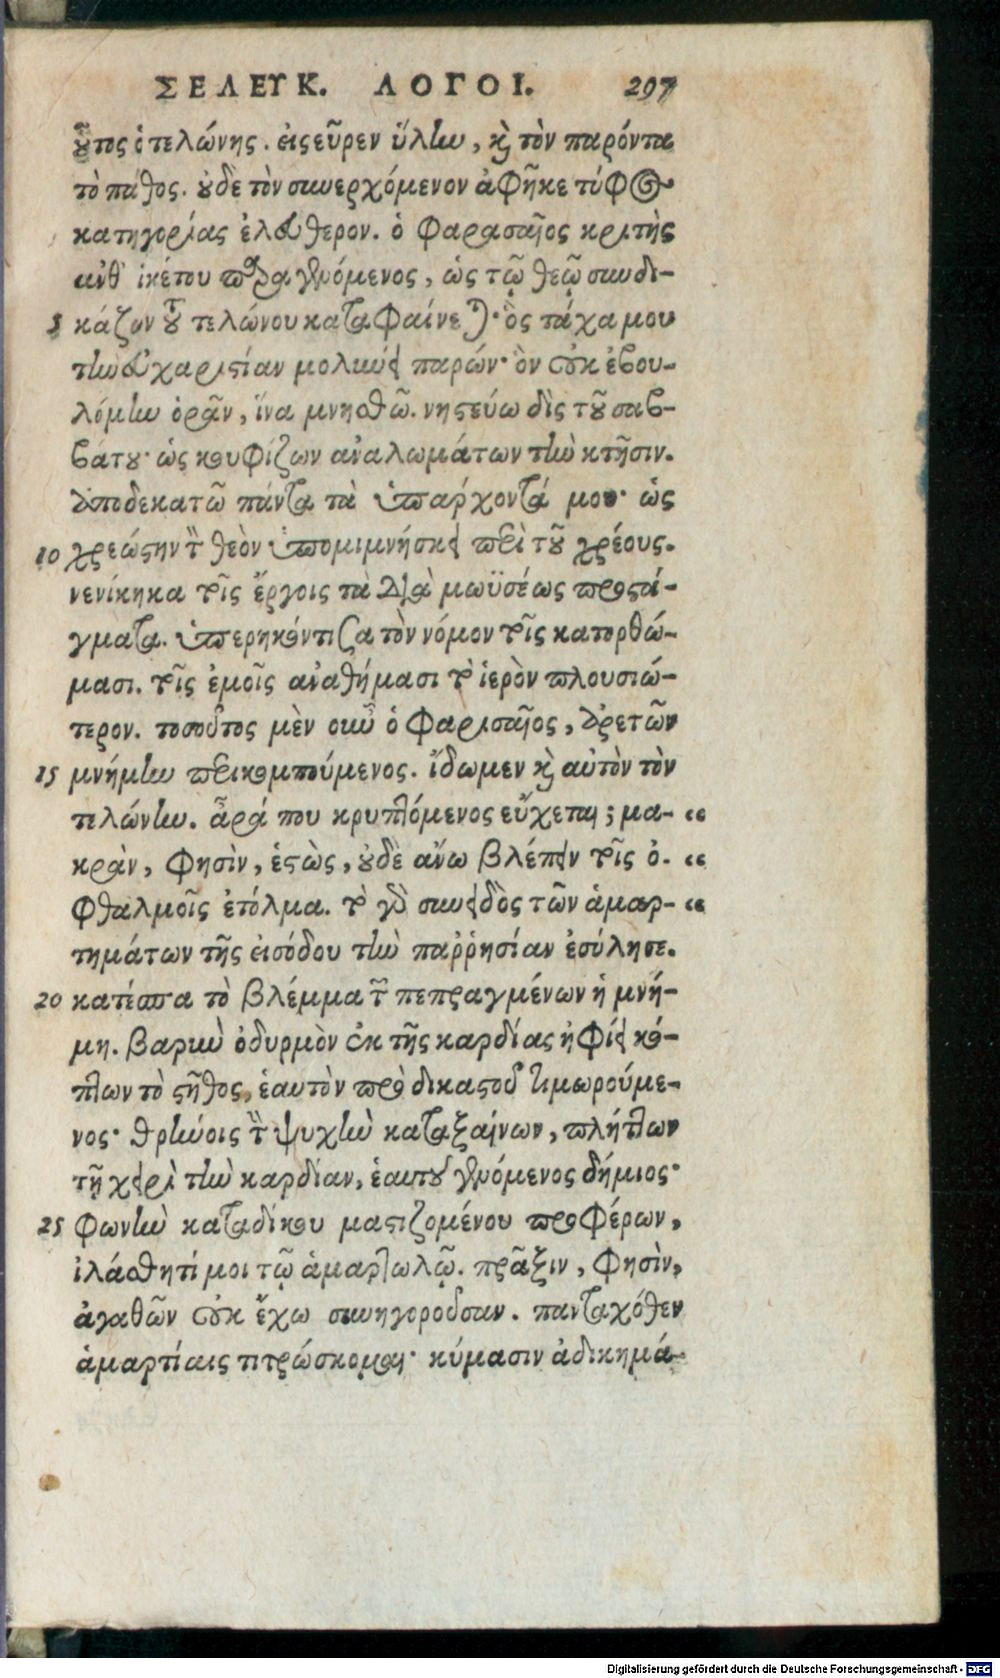 ΣΕΛΕΥΚ. ΛΟΓΟΙ. 297
οὗτος ὁ τελώνης. εἰς εὗρεν ὕλην, καὶ τὸν παρόντα
τὸ πάθος. οὐδὲ τὸν συνερχόμενον ἀφῆκε τύφος
κατηγορίας ἐλεύθερον. ὁ φαρασαῖος κριτὴς
ἀνθ' ἱκέτου παραγενόμενος, ὡς τῷ θεῷ συνδι-
5 κάζων τοῦ τελώνου καταφαίνεται· ὃς τάχα μου
τὴν εὐχαριστίαν μολύνει παρών· ὃν οὐκ ἐβου-
λόμην ὁρᾶν, ἵνα μνησθῶ. νηστεύω δὶς τοῦ σαβ-
βάτου· ὡς κουφίζων ἀναλωμάτων τὴν κτῆσιν.
ἀποδεκατῶ πάντα τὰ ὑπάρχοντά μου· ὡς
10 χρεώστην τὸν θεὸν ὑπομιμνήσκει περὶ τοῦ χρέους.
νενίκηκα τοῖς ἔργοις τὰ διὰ μωϋσέως προστά-
γματα. ὑπερηκόντισα τὸν νόμον τοῖς κατορθώ-
μασι. τοῖς ἐμοῖς ἀναθήμασι τὸ ἱερὸν πλουσιώ-
τερον. τοσοῦτος μὲν οὖν ὁ φαρισαῖος, ἀρετῶν
15 μνήμην περικομπούμενος. ἴδωμεν καὶ αὐτὸν τὸν
τελώνην. ἆρά που κρυπτόμενος εὔχεται; μα- “
κρὰν, φησὶν, ἑστὼς, οὐδὲ ἄνω βλέπειν τοῖς ὀ- “
φθαλμοῖς ἐτόλμα. τὸ γὰρ συνειδὸς τῶν ἁμαρ- “
τημάτων τῆς εἰσόδου τὴν παῤῥησίαν ἐσύλησε.
20 κατέσπα τὸ βλέμμα τῶν πεπραγμένων ἡ μνή-
μη. βαρὺν ὀδυρμὸν ἐκ τῆς καρδίας ἠφίει κό-
πτων τὸ στῆθος, ἑαυτὸν πρὸ δικαστοῦ τιμωρούμε-
νος· θρήνοις τὴν ψυχὴν καταξαίνων, πλήττων
τῇ χειρὶ τὴν καρδίαν, ἑαυτοῦ γενόμενος δήμιος·
25 φωνὴν καταδίκου μαστιζομένου προφέρων,
ἱλάσθητί μοι τῷ ἁμαρτωλῷ. πρᾶξιν, φησὶν,
ἀγαθῶν οὐκ ἔχω συνηγοροῦσαν. πανταχόθεν
ἁμαρτίαις τιτρώσκομαι· κύμασιν ἀδικημά-
Digitalisierung gefördert durch die Deutsche Forschungsgemeinschaft - DFG